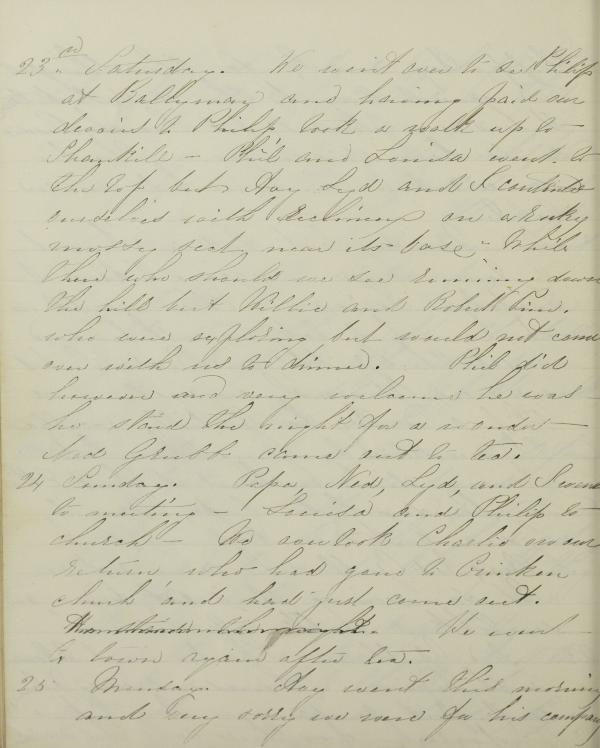 23rd Saturday. We went over to see Philip
at Ballyman and having paid our
devoirs to Philip took a walk up to
Shankill - Phil and Louisa went to
the top but Hay Lyd and I contented
ourselves with reclining on a
mossy seat near its base - While
there who should we see running down
the hill but Willie and Robert
who were exploring but would not come
over with us to dinner. Phil did
however and very welcome he was -
he staid the night for a wonder -
Ned Grubb came out to tea.
24 Sunday. Papa, Ned, Lyd, and I went
to meeting - Louisa and Philip to
church - We overtook Charlie on our
return who had gone to Crinken
church and had just come out.
We went
to town again after tea.
25 Monday. Hay went this morning
and very sorry we were for his company